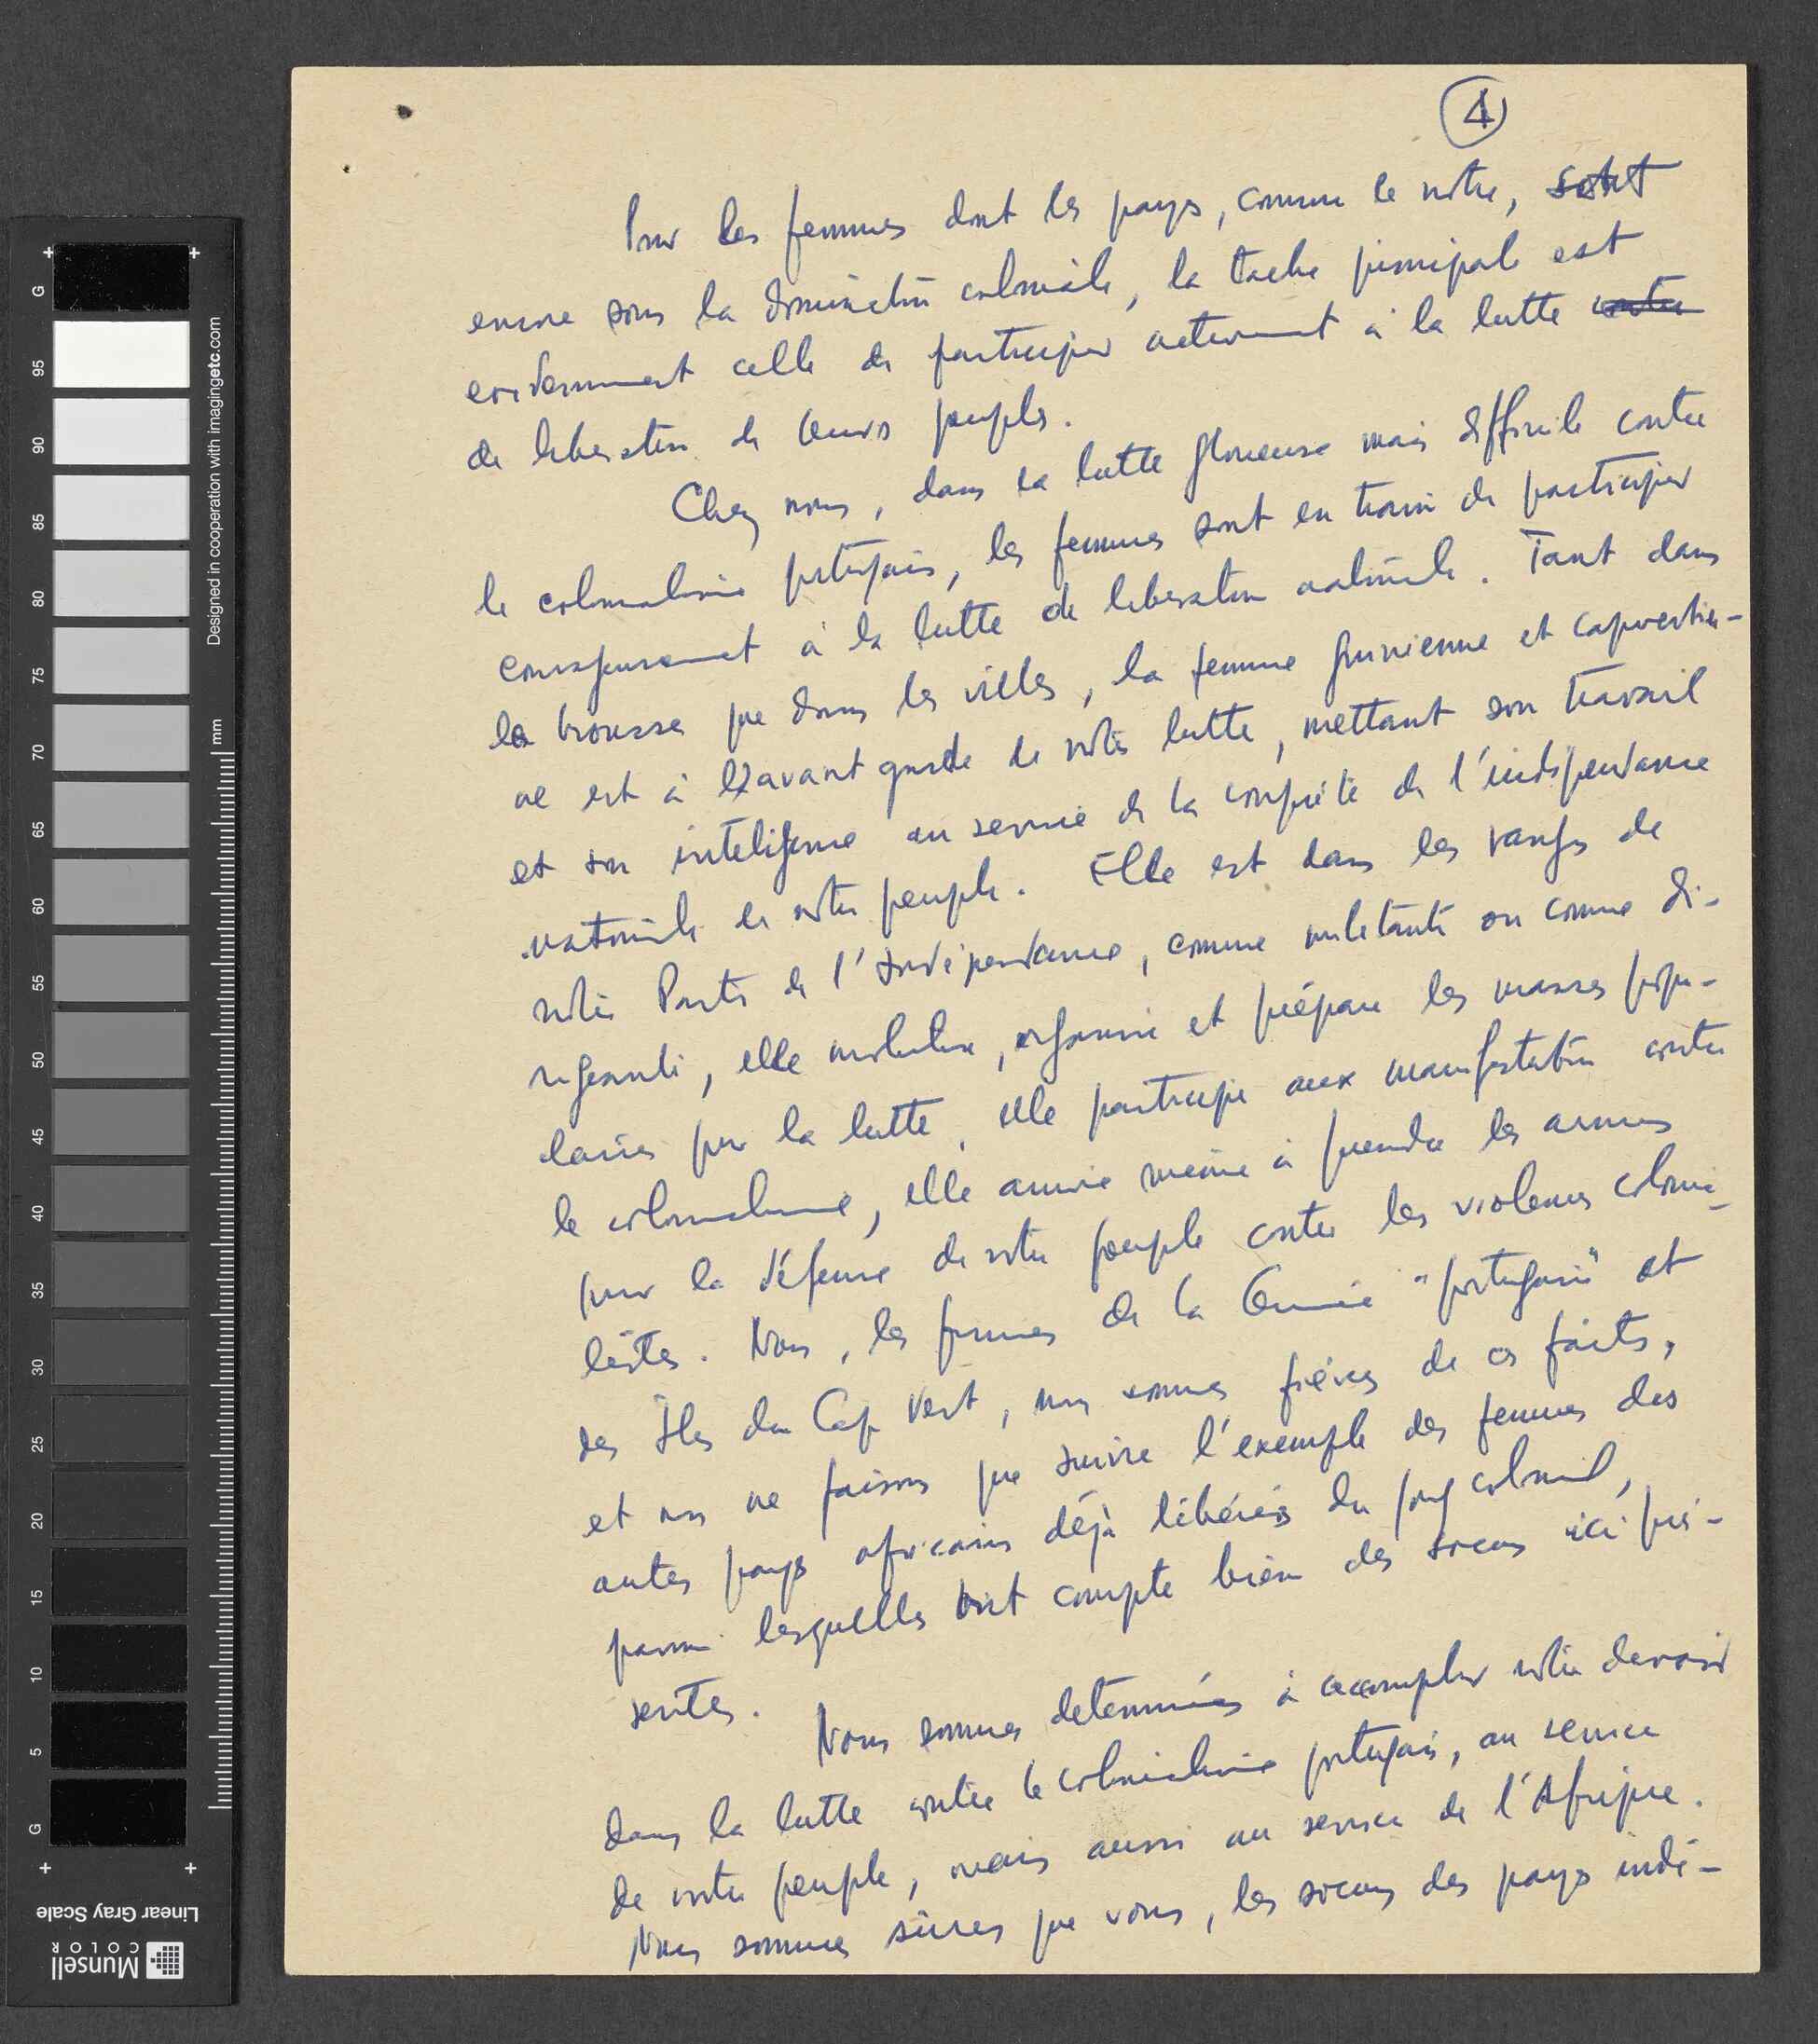 4
Pour les femmes dont les pays, comme le notre, sont
encore sous la domination coloniale, la tache principale est
evidemment celle de participer activement à la lutte contre
de liberation de leurs peuples.
Chez nous, dans la lutte glorieuse mais difficile contre
le colonialisme portugais, les femmes sont en train de participer
courageusement à la lutte de liberation nationale. Tant dans
la brousse que dans les villes, la femme guinienne et capverdien-
ne est à l'avant garde de notre lutte, mettant son travail
et son inteligence au service de la conquête de l'indépendance
nationale de notre peuple. Elle est dans les rangs de
notre Parti de l'Indépendance, comme militante ou comme di-
rigeante, elle mobilise, organise et prépare les masses popu-
laires pour la lutte, elle participe aux manifestation contre
le colonialisme, elle arrive même à prendre les armes
pour la défense de notre peuple contre les violences colonia-
listes. Nous, les femmes de la Guinée "portugaise" et
des Iles du Cap Vert, nous sommes fières de ces faits,
et nous ne faisons que suivre l'exemple des femmes des
autres pays africains déjà libérés du joug colonial,
parmi lesquelles on compte bien des soeurs ici pré-
sentes.
Nous sommes determinées à accomplir notre devoir
dans la lutte contre le colonialisme portugais, au service
de notre peuple, mais aussi au service de l'Afrique.
Nous sommes sûres que vous, les soeurs des pays indé-
G
95
90
85
80
75
70
65
60
55
50
45
40
35
30
25
20
15
10
5
G
mm
Designed in cooperation with imagingetc.com
Linear Gray Scale
Munsell
COLOR